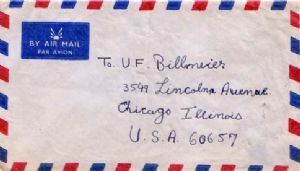 BY AIR MAIL
PAR AVION
To U.F. Billmeier
3549 Lincolna Avenue
Chicago Illinois
U.S.A. 60657